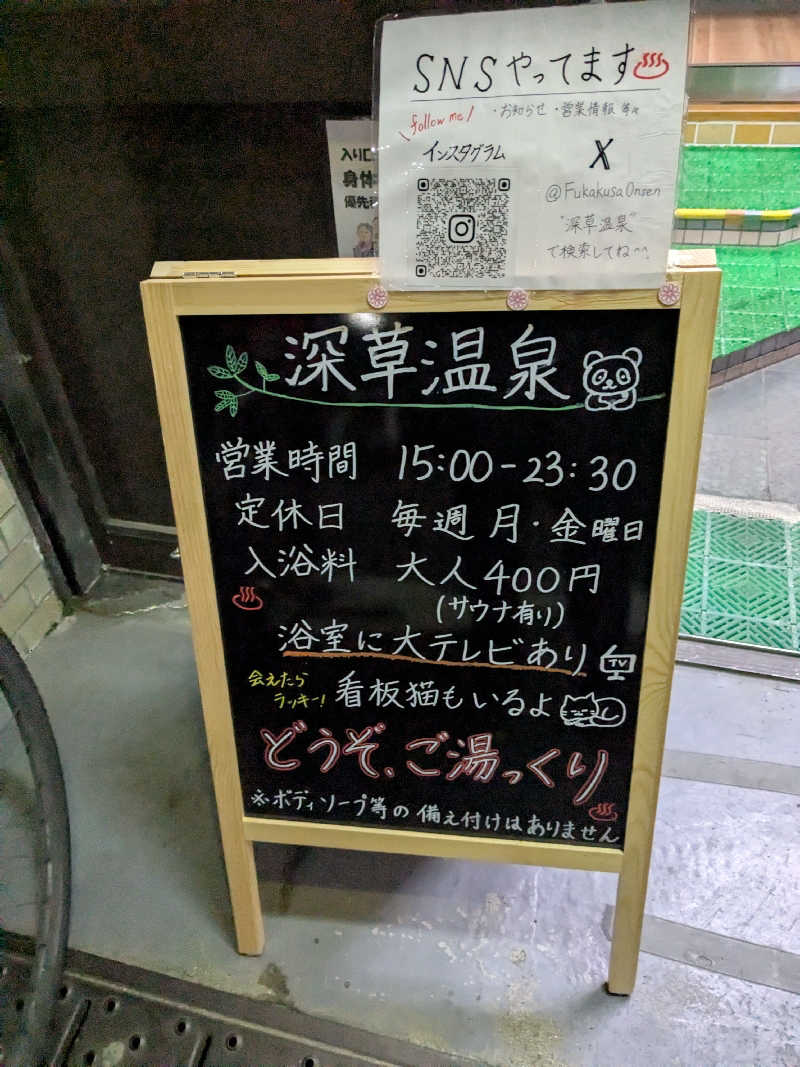 SNSやってます
follow me!
・お知らせ・営業情報 等々
インスタグラム
X
@FukakusaOnsen
"深草温泉"
で検索してね^^
入り口
身体
優先
深草温泉
営業時間 15:00-23:30
定休日 毎週 月・金曜日
入浴料 大人400円
(サウナ有り)
浴室に大テレビあり
TV
会えたら
ラッキー!
看板猫もいるよ
どうぞ、ご湯っくり
※ボディソープ等の備え付けはありません